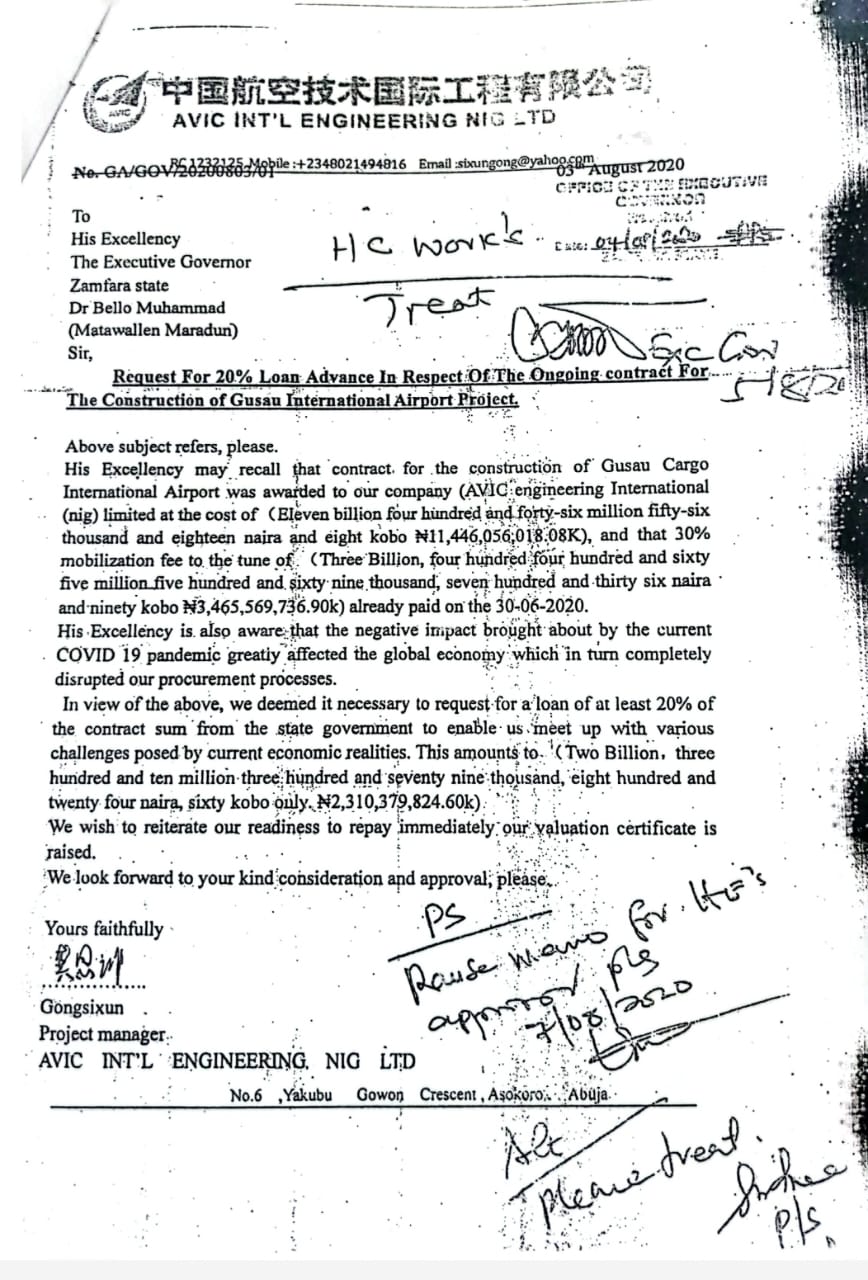 中国航空技术国际工程有限公司
AVIC INT'L ENGINEERING NIG LTD
RC 1232125 Mobile :+2348021494816 Email :sixungong@yahoo.com
No. GA/GOV/20200803/01
03rd August 2020
OFFICE OF THE EXECUTIVE
GOVERNOR
Date: 04/08/2020
To
His Excellency
The Executive Governor
Zamfara state
Dr Bello Muhammad
(Matawallen Maradun)
Sir,
HC Work's
Treat
Exc Gov
5/8/20
Request For 20% Loan Advance In Respect Of The Ongoing contract For
The Construction of Gusau International Airport Project.
Above subject refers, please.
His Excellency may recall that contract for the construction of Gusau Cargo
International Airport was awarded to our company (AVIC engineering International
(nig) limited at the cost of (Eleven billion four hundred and forty-six million fifty-six
thousand and eighteen naira and eight kobo ₦11,446,056,018.08K), and that 30%
mobilization fee to the tune of (Three Billion, four hundred four hundred and sixty
five million five hundred and sixty nine thousand, seven hundred and thirty six naira
and ninety kobo ₦3,465,569,736.90k) already paid on the 30-06-2020.
His Excellency is also aware that the negative impact brought about by the current
COVID 19 pandemic greatly affected the global economy which in turn completely
disrupted our procurement processes.
In view of the above, we deemed it necessary to request for a loan of at least 20% of
the contract sum from the state government to enable us meet up with various
challenges posed by current economic realities. This amounts to (Two Billion, three
hundred and ten million three hundred and seventy nine thousand, eight hundred and
twenty four naira, sixty kobo only. ₦2,310,379,824.60k)
We wish to reiterate our readiness to repay immediately our valuation certificate is
raised.
We look forward to your kind consideration and approval, please.
Yours faithfully
Gongsixun
Project manager
AVIC INT'L ENGINEERING, NIG LTD
No.6 ,Yakubu Gowon Crescent , Asokoro, Abuja
PS
Rause memo for HE's
approval pls
7/08/2020
please treat.
P/S